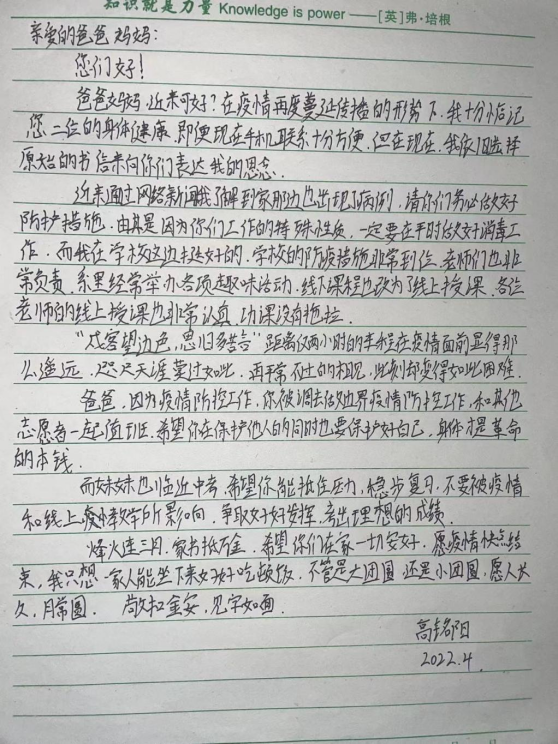 知识就是力量 Knowledge is power ——[英]弗·培根
亲爱的爸爸妈妈：
您们好！
爸爸妈妈，近来可好？在疫情再度蔓延传播的形势下，我十分惦记
您二位的身体健康，即便现在手机联系十分方便，但在现在，我依旧选择
原始的书信来向你们表达我的思念．
近来通过网络新闻我了解到家那边也出现了病例，请你们务必做好
防护措施，由其是因为你们工作的特殊性质，一定要在平时做好消毒工
作．而我在学校这边挺好的，学校的防疫措施非常到位，老师们也非
常负责，系里经常举办各项趣味活动，线下课程也改为了线上授课，各位
老师的线上授课也非常认真，功课没有拖拉．
“戍客望边色，思归多苦言”距离仅两小时的车程在疫情面前显得那
么遥远，咫尺天涯莫过如此，再平常不过的相见，此刻却变得如此困难．
爸爸，因为疫情防控工作，你被调去做边界疫情防控工作，和其他
志愿者一起值班，希望你在保护他人的同时也要保护好自己，身体才是革命
的本钱．
而妹妹也临近中考，希望你能抵住压力，稳步复习，不要被疫情
和线上教学所影响，争取好好发挥，考出理想的成绩．
烽火连三月，家书抵万金，希望你们在家一切安好，愿疫情快点结
束，我只想一家人能坐下来好好吃顿饭，不管是大团圆，还是小团圆，愿人长
久，月常圆． 敬知金安，见字如面．
高铭阳
2022.4.